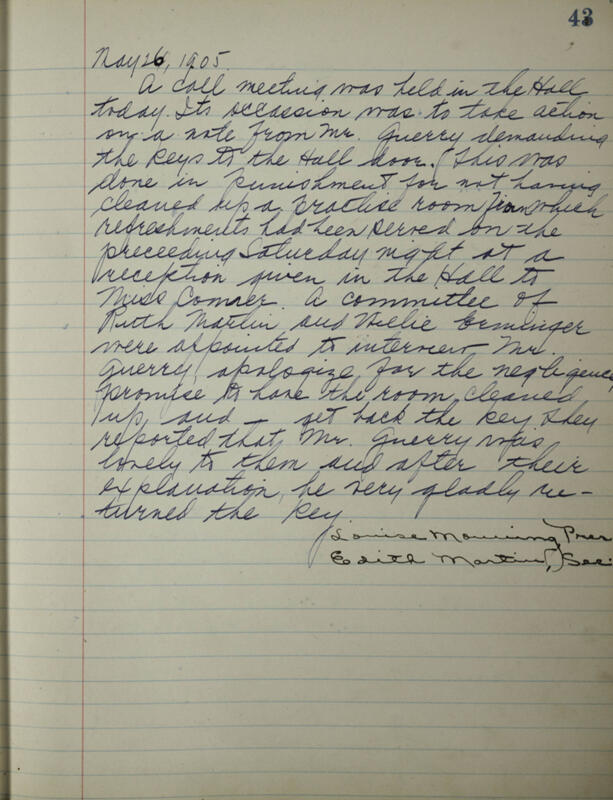 43
May 26, 1905.
A call meeting was held in the Hall
today. Its occassion was to take action
on a note from Mr. Guerry demanding
the keys to the Hall door. This was
done in punishment for not having
cleaned up a practise room from which
refreshments had been served on the
preceeding Saturday night at a
reception given in the Hall to
Miss Comer. A committee of
Ruth Martin and Willie Erminger
were appointed to interview Mr.
Guerry, apologize for the negligence,
promise to have the room cleaned
up, and – get back the key. They
reported that Mr. Guerry was
lovely to them and after their
explanation, he very gladly re-
turned the key
Louise Manning, Pres
Edith Martin, Sec.